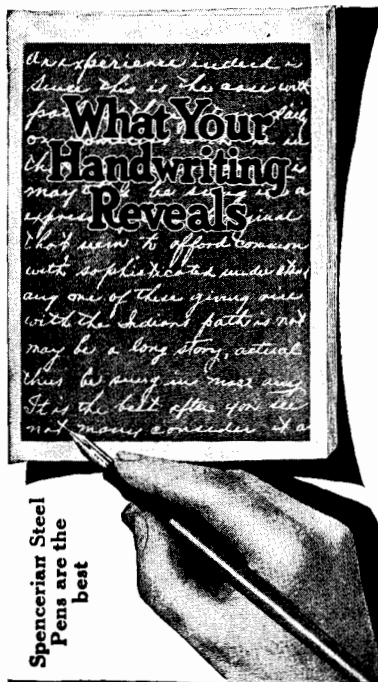 An experience indeed is
since this is the case with
What Your
Handwriting
Reveals
may be sung is a
that seem to afford common
with sophisticated under
any one of these giving rise
with the Indians path is not
may be a long story, actual
thus be sung in more any
It is the best after you see
not many consider it a
Spencerian Steel
Pens are the
best